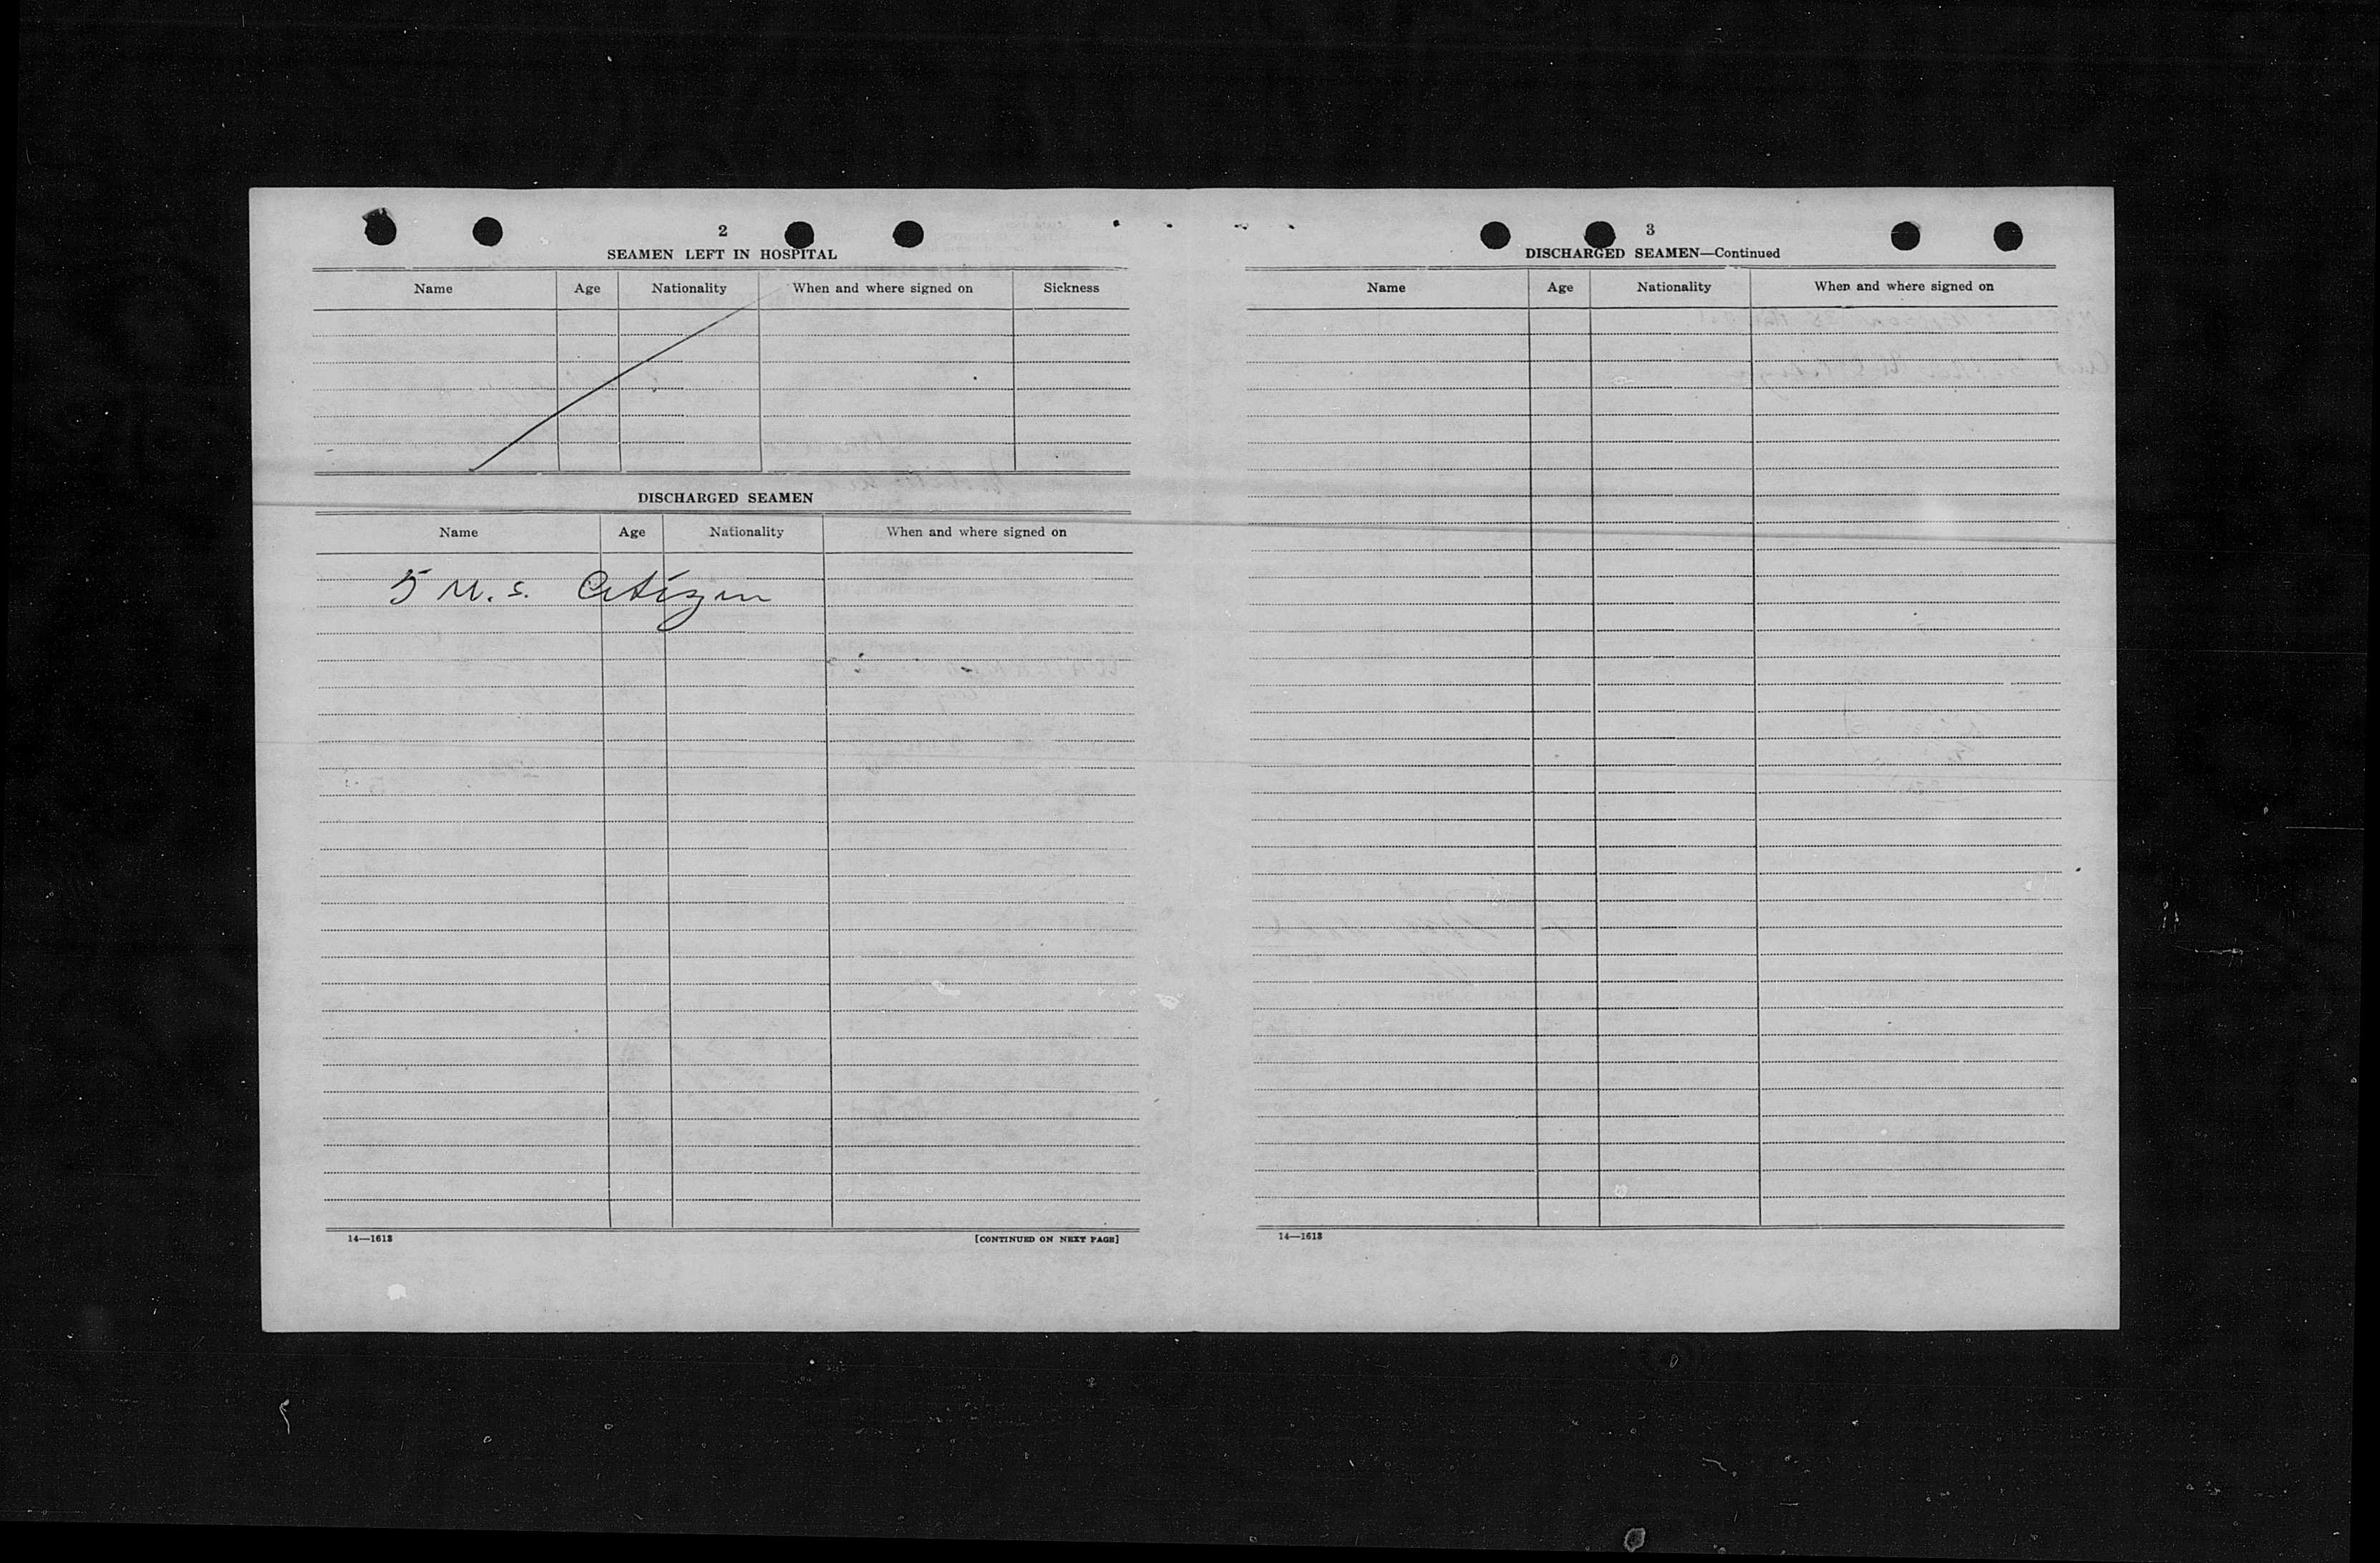 2
SEAMEN LEFT IN HOSPITAL
Name Age Nationality When and where signed on Sickness
DISCHARGED SEAMEN
Name Age Nationality When and where signed on
5 U.S. Citizen
14—1613
[CONTINUED ON NEXT PAGE]
3
DISCHARGED SEAMEN—Continued
Name Age Nationality When and where signed on
14—1613